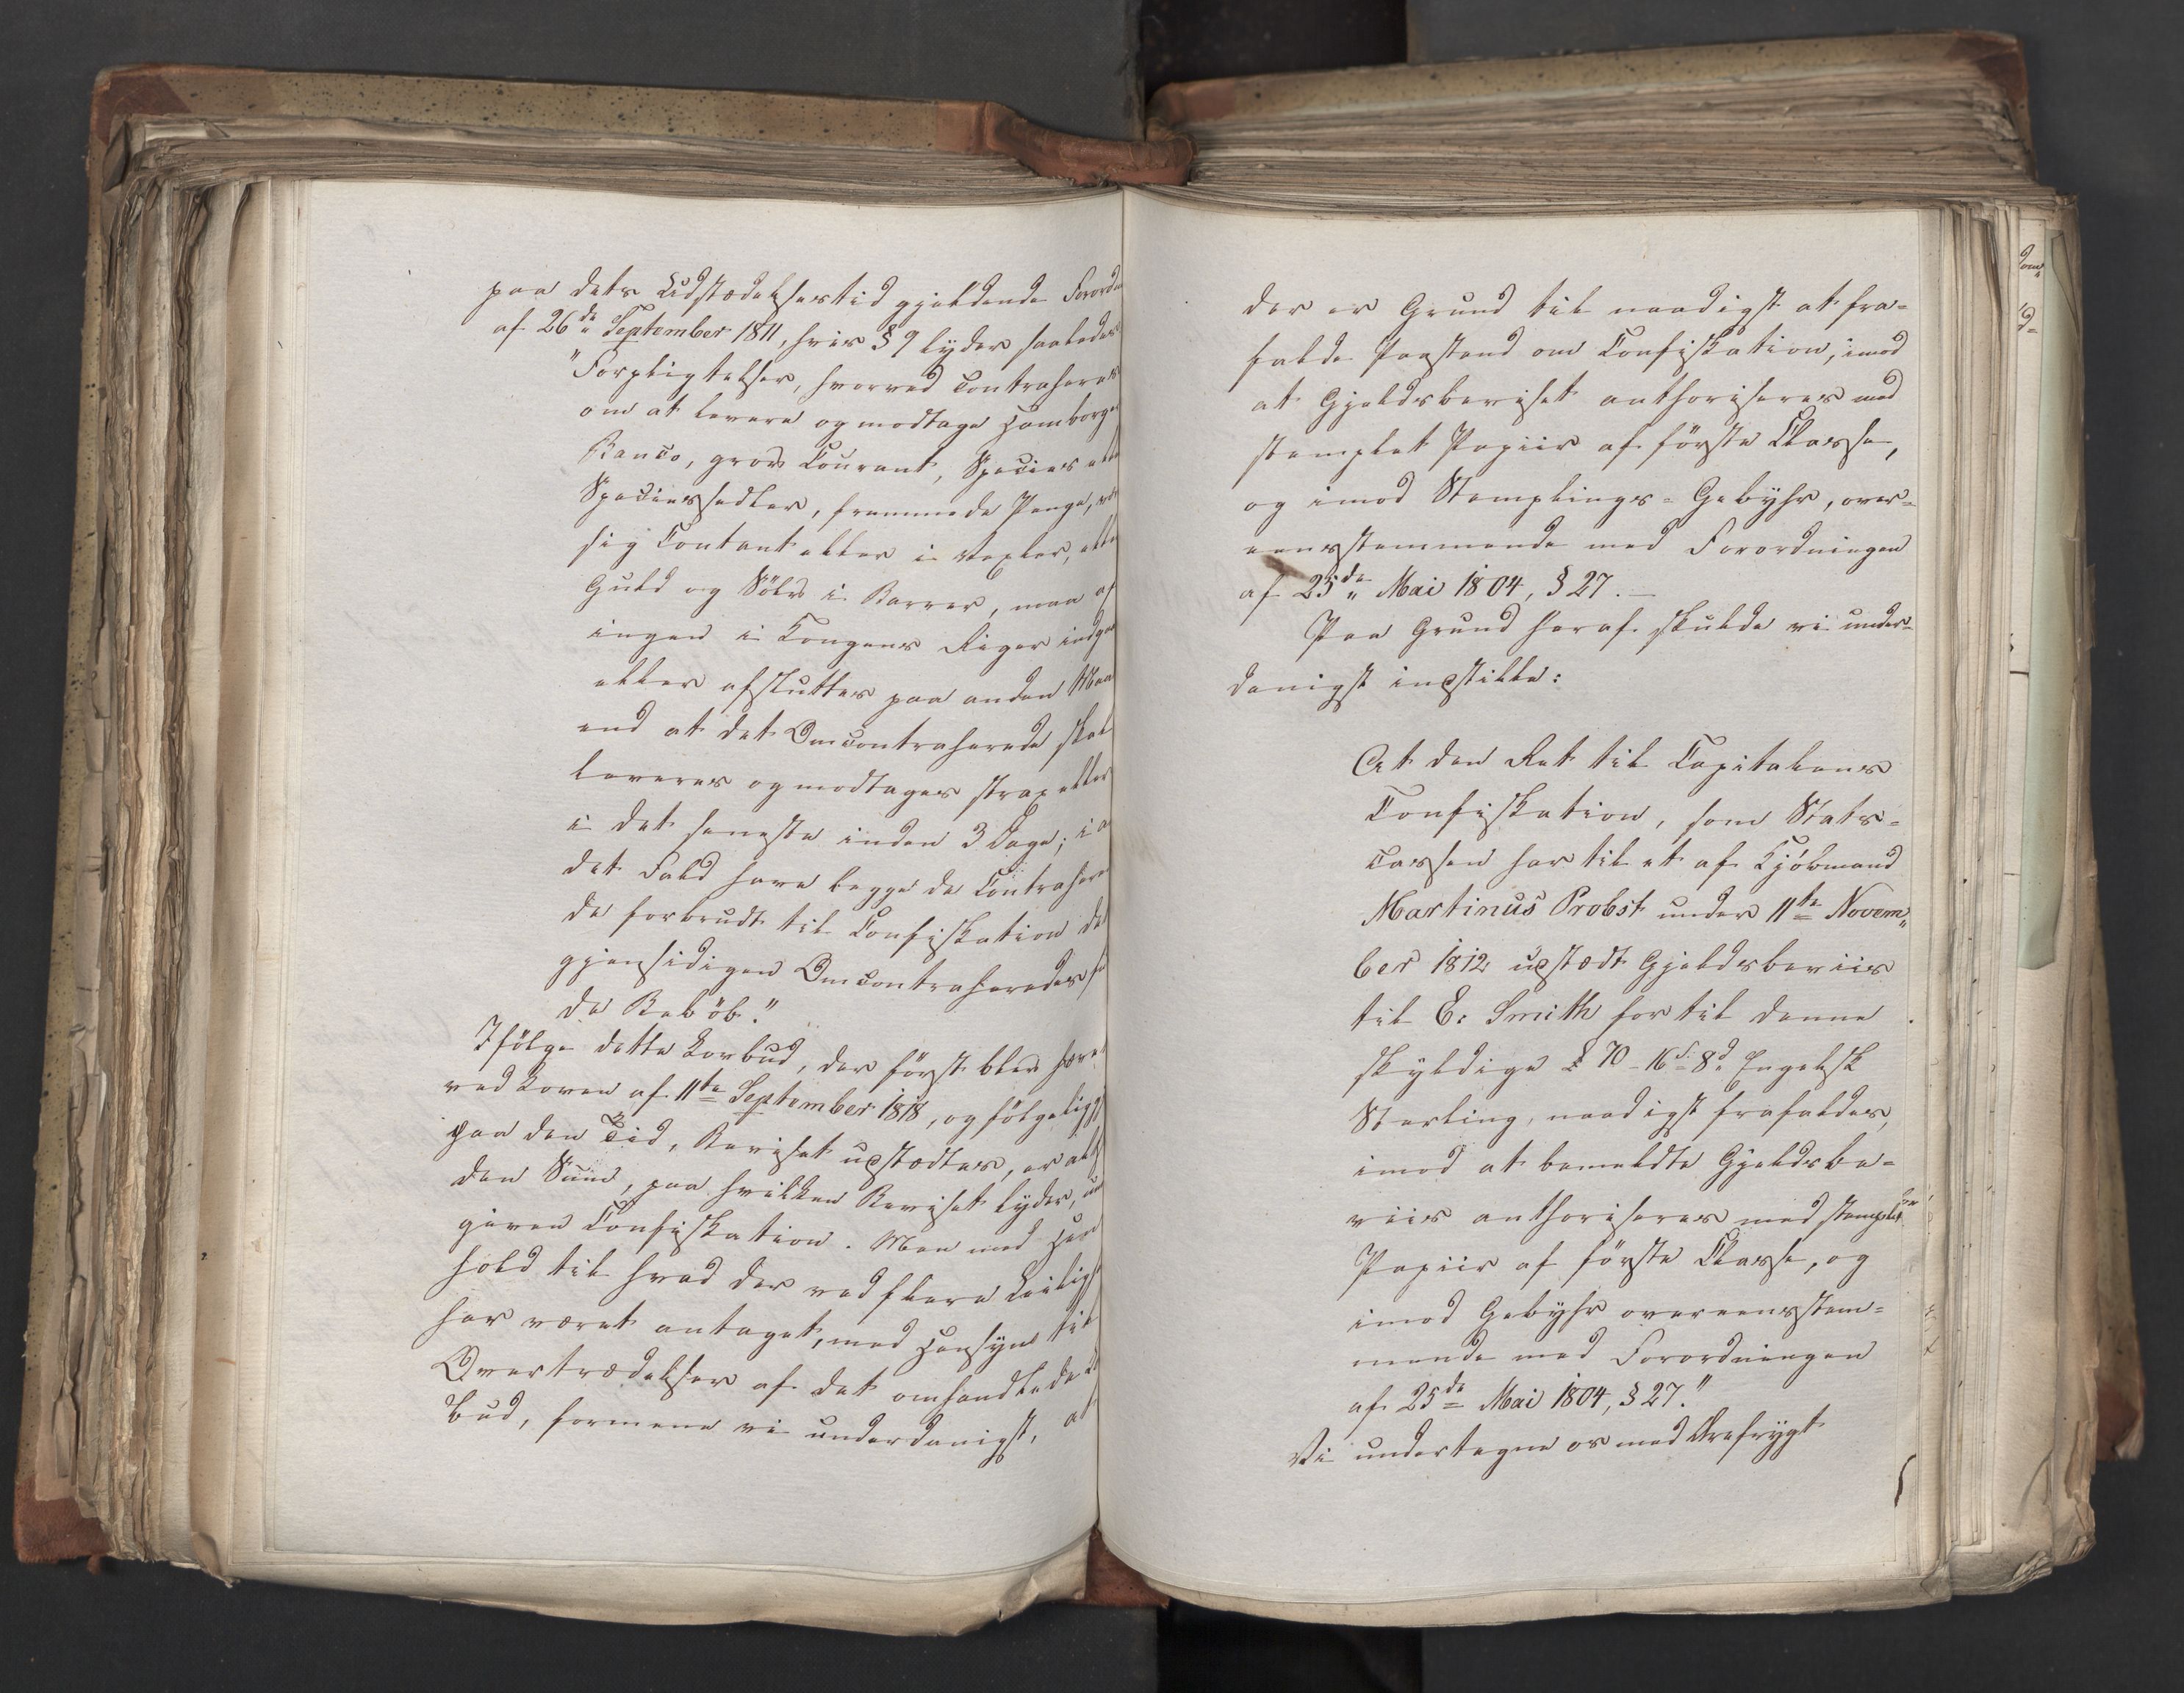 paa dets Udstædelsestid gjeldende Forord
af 26de September 1811, hvis § 9 lyder saaledes
"Forpligtelser, hvorved contraheres
om at levere og modtage Hamborger
Banco, grov Courant, Species eller
Speciessedler, fremmede Penge,
sig Contant eller i Vexler, eller
Guld og Sölv i Barrer, maa af
ingen i Kongens Riger indgaa
eller afsluttes paa anden Maa
end at det Omcontraherede skal
leveres og modtages strax eller
i det seneste inden 3 Dage; i a
det Fald have begge de Contrahere
de forbrudt til Confiskation det
gjensidigen Omcontraheredes ful
de Belöb."
Ifölge dette Lovbud, der först blev hævet
ved Loven af 11te September 1818, og fölgeligen
paa den Tid, Beviset udstædtes, er altsaa
den Sum, paa hvilken Beviset lyder, und
given Confiskation. Men med Hen
hold til hvad der ved flere Leilig
har været antaget, med Hensyn til
Overtrædelser af det omhandlede L
bud, formene vi underdanigst, at
der er Grund til naadigst at fra=
falde Paastand om Confiskation, imod
at Gjeldsbeviset authoriseres med
stemplet Papiir af förste Classe,
og imod Stemplings=Gebyhr, over=
eensstemmende med Forordningen
af 25de Mai 1804, § 27. —
Paa Grund heraf skulde vi under=
danigst indstille:
At den Ret til Capitalens
Confiskation, som Stats=
cassen har til et af Kjöbmand
Martinus Probst under 11te Novem„
ber 1812 udstædt Gjeldsbeviis
til E: Smith for til denne
skyldige £ 70 - 16s. 8d Engelsk
Sterling, naadigst frafaldes,
imod at bemeldte Gjeldsbe=
viis authoriseres med stemplet
Papiir af förste Classe, og
imod Gebyhr overeensstem=
mende med Forordningen
af 25de Mai 1804, § 27."
Vi undertegne os med Ærefrygt